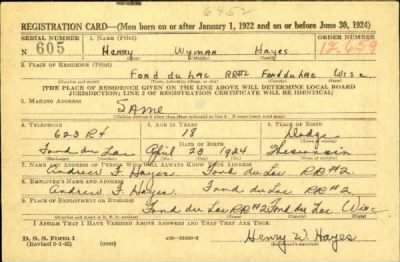 6452
REGISTRATION CARD—(Men born on or after January 1, 1922 and on or before June 30, 1924)
SERIAL NUMBER 1. NAME (Print) ORDER NUMBER
N 605 Henry Wyman Hayes 12,659
(First) (Middle) (Last)
2. PLACE OF RESIDENCE (Print)
Fond du Lac RR#2 Fond du Lac Wisc.
[THE PLACE OF RESIDENCE GIVEN ON THE LINE ABOVE WILL DETERMINE LOCAL BOARD
JURISDICTION; LINE 2 OF REGISTRATION CERTIFICATE WILL BE IDENTICAL]
3. MAILING ADDRESS
SAME
4. TELEPHONE 5. AGE IN YEARS 6. PLACE OF BIRTH
623 R4 18 Dodge
DATE OF BIRTH
Fond du Lac April 23 1924 Wisconsin
7. NAME AND ADDRESS OF PERSON WHO WILL ALWAYS KNOW YOUR ADDRESS
Andrew F. Hayes Fond du Lac RR#2
8. EMPLOYER'S NAME AND ADDRESS
Andrew F. Hayes Fond du Lac RR#2
9. PLACE OF EMPLOYMENT OR BUSINESS
Fond du Lac RR#2 Fond du Lac Wisc
I AFFIRM THAT I HAVE VERIFIED ABOVE ANSWERS AND THAT THEY ARE TRUE.
D. S. S. Form 1
Henry W. Hayes